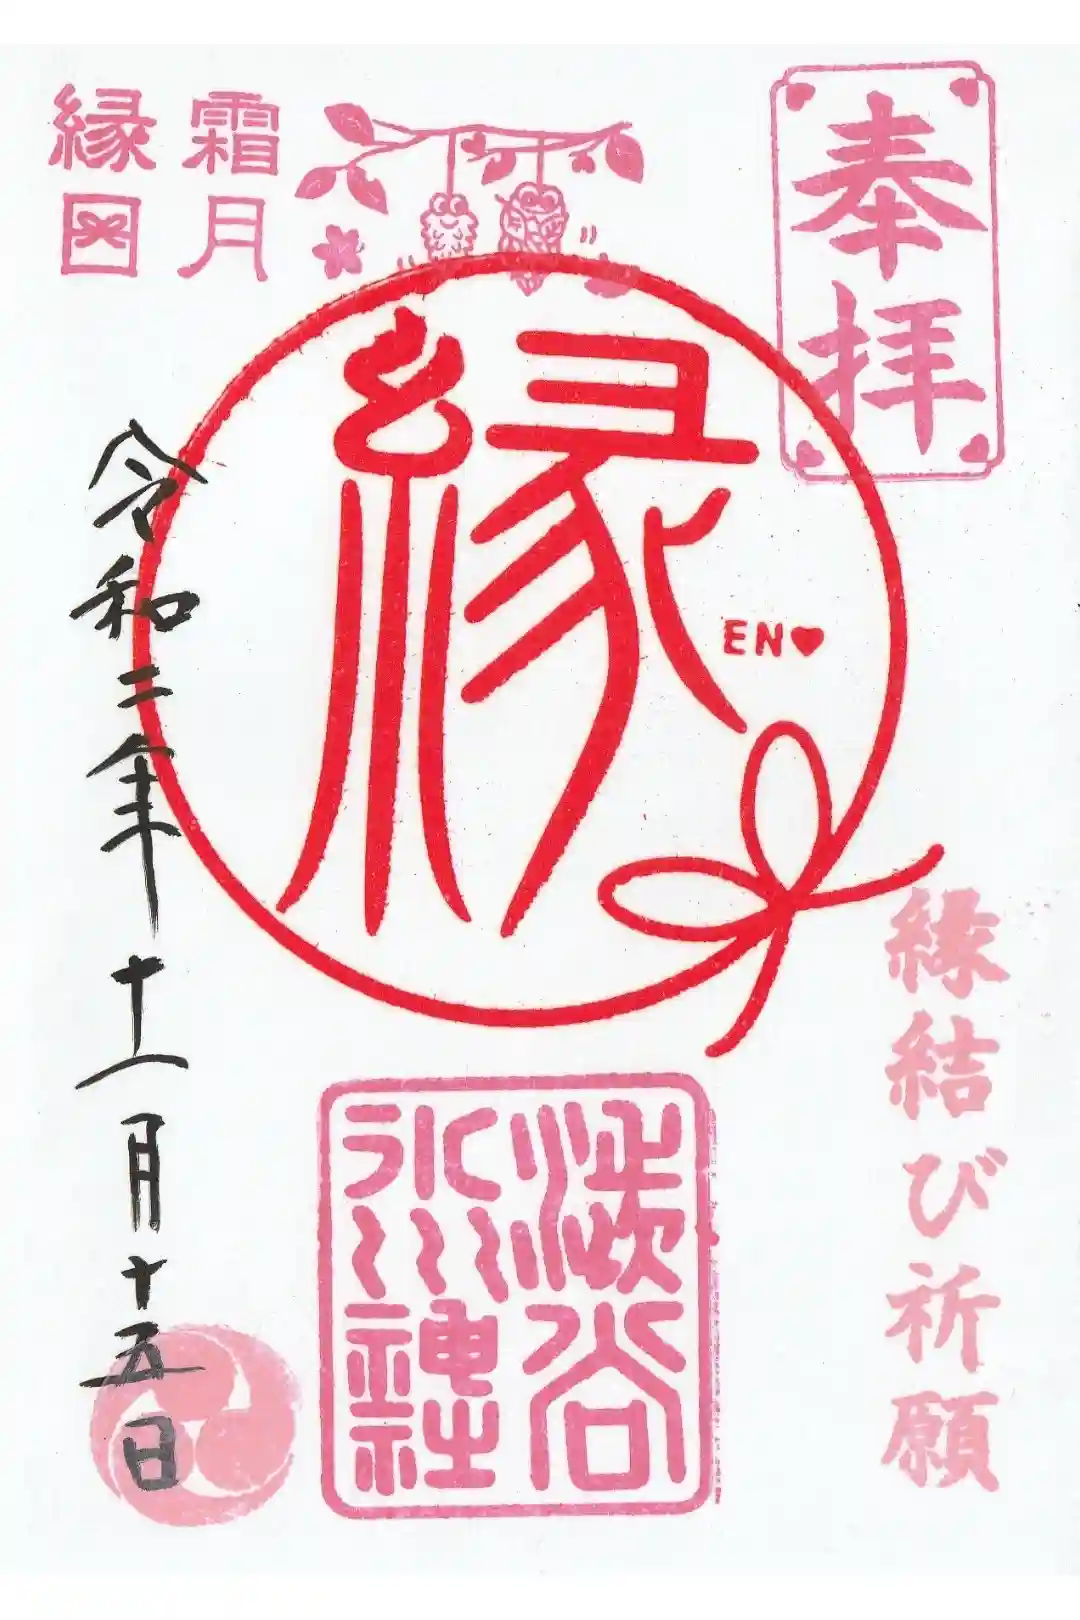 奉拝
霜月
縁日
縁
EN♥
縁結び祈願
渋谷
氷川
神社
令和二年十一月十五日